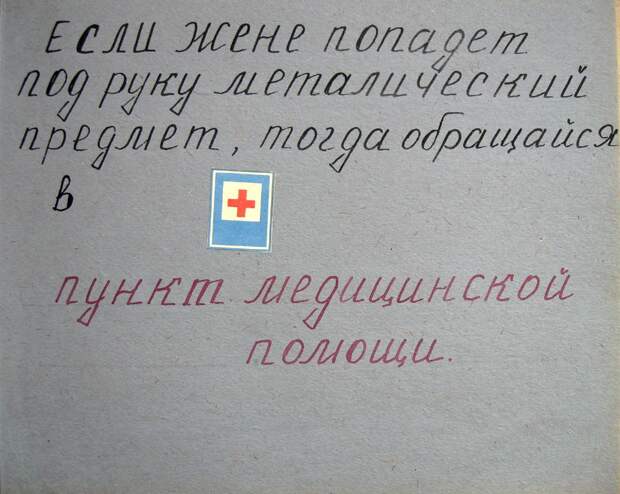 Если жене попадет
под руку металический
предмет, тогда обращайся
в
пункт медицинской
помощи.